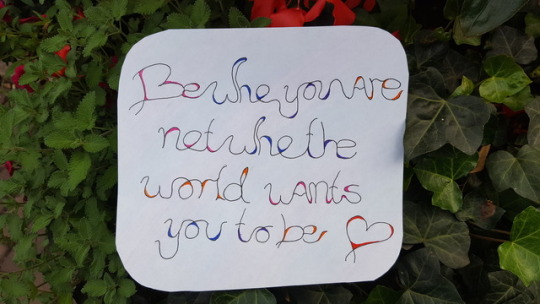 Be who you Are
not who the
world wants
you to be